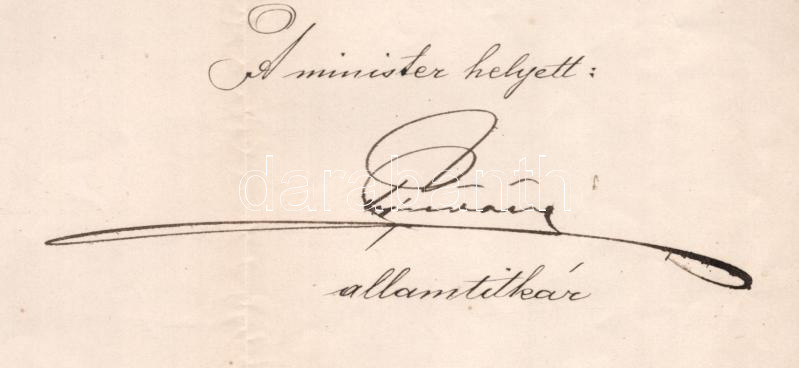 A minister helyett:
darabanth
államtitkár